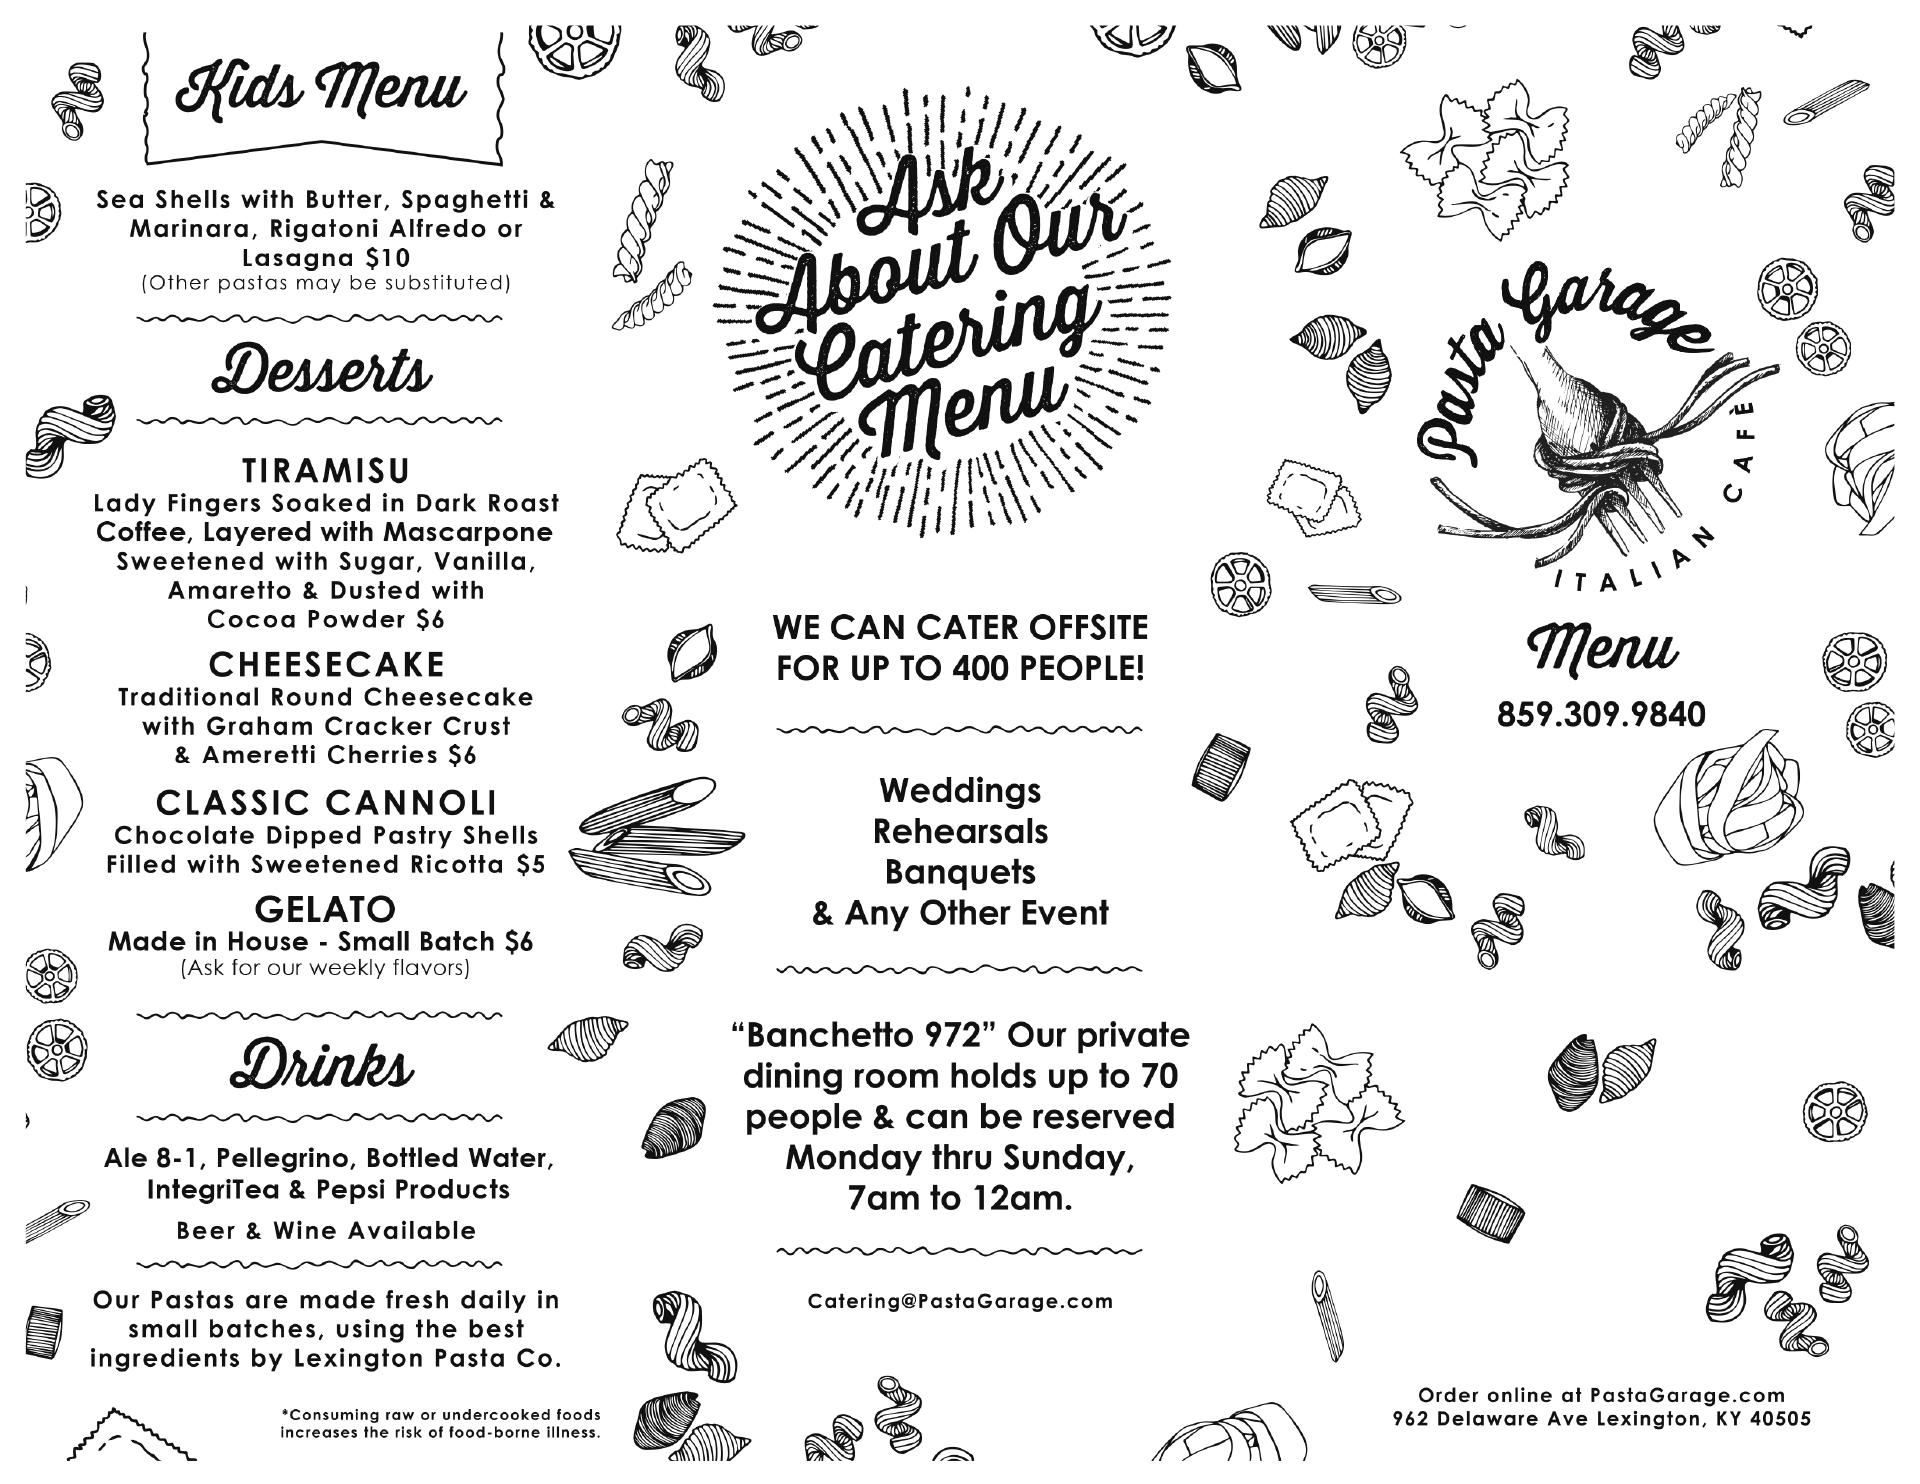 Kids Menu
Sea Shells with Butter, Spaghetti &
Marinara, Rigatoni Alfredo or
Lasagna $10
(Other pastas may be substituted)
Desserts
TIRAMISU
Lady Fingers Soaked in Dark Roast
Coffee, Layered with Mascarpone
Sweetened with Sugar, Vanilla,
Amaretto & Dusted with
Cocoa Powder $6
CHEESECAKE
Traditional Round Cheesecake
with Graham Cracker Crust
& Ameretti Cherries $6
CLASSIC CANNOLI
Chocolate Dipped Pastry Shells
Filled with Sweetened Ricotta $5
GELATO
Made in House - Small Batch $6
(Ask for our weekly flavors)
Drinks
Ale 8-1, Pellegrino, Bottled Water,
IntegriTea & Pepsi Products
Beer & Wine Available
Our Pastas are made fresh daily in
small batches, using the best
ingredients by Lexington Pasta Co.
*Consuming raw or undercooked foods
increases the risk of food-borne illness.
Ask
About Our
Catering
Menu
WE CAN CATER OFFSITE
FOR UP TO 400 PEOPLE!
Weddings
Rehearsals
Banquets
& Any Other Event
“Banchetto 972” Our private
dining room holds up to 70
people & can be reserved
Monday thru Sunday,
7am to 12am.
Catering@PastaGarage.com
Pasta Garage
ITALIAN CAFÈ
Menu
859.309.9840
Order online at PastaGarage.com
962 Delaware Ave Lexington, KY 40505